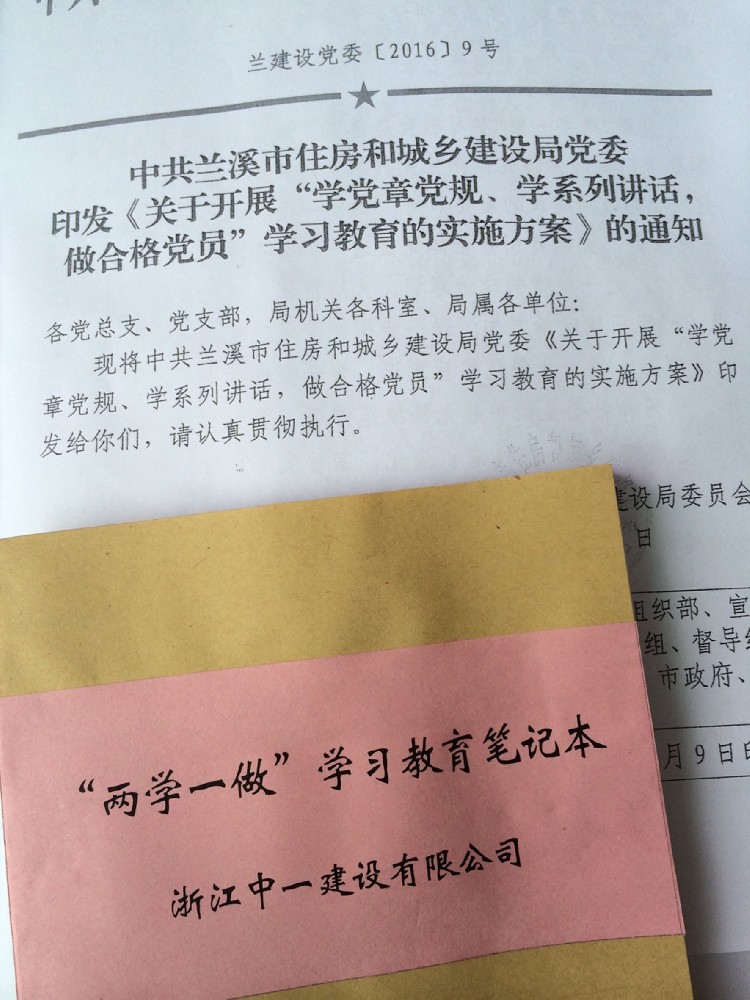 兰建设党委〔2016〕9号
中共兰溪市住房和城乡建设局党委
印发《关于开展“学党章党规、学系列讲话,
做合格党员”学习教育的实施方案》的通知
各党总支、党支部,局机关各科室、局属各单位:
现将中共兰溪市住房和城乡建设局党委《关于开展“学党
章党规、学系列讲话,做合格党员”学习教育的实施方案》印
发给你们,请认真贯彻执行。
建设局委员会
日
组织部、宣
组、督导组
市政府、
月9日印
“两学一做”学习教育笔记本
浙江中一建设有限公司